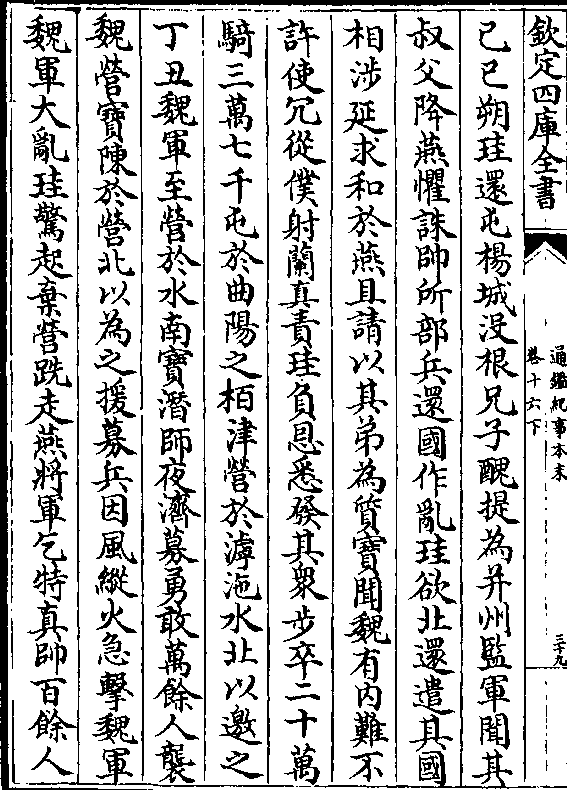 欽定四庫全書
通鑑紀事本末
卷十六下
三十九
己巳朔珪還屯楊城没根兄子醜提為并州監軍聞其
叔父降燕懼誅帥所部兵還國作亂珪欲北還遣其國
相涉延求和於燕且請以其弟為質寶聞魏有内難不
許使冗從僕射蘭真責珪負恩悉發其衆步卒二十萬
騎三萬七千屯於曲陽之栢津營於滹沲水北以邀之
丁丑魏軍至營於水南寶潛師夜濟募勇敢萬餘人襲
魏營寶陳於營北以為之援募兵因風縱火急擊魏軍
魏軍大亂珪驚起棄營跣走燕將軍乞特真帥百餘人